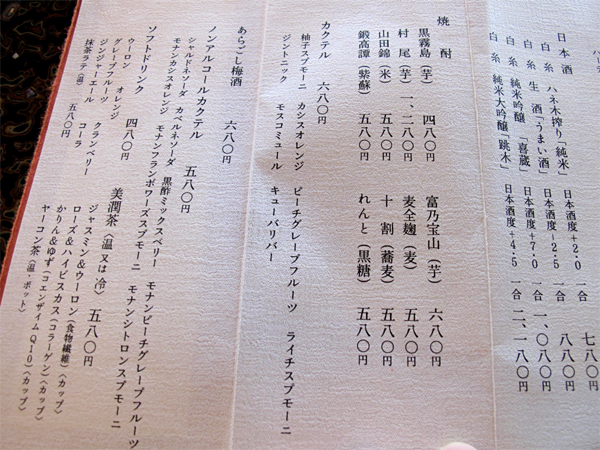 日本酒
白糸 ハネ木搾り「純米」 日本酒度+2・0 一合 七八〇円
白糸 生酒「うまい酒」 日本酒度+2・5 一合 八八〇円
白糸 純米吟醸「喜蔵」 日本酒度+7・0 一合 一、〇八〇円
白糸 純米大吟醸「跳木」 日本酒度+4・5 一合 二、一八〇円
焼酎
黒霧島(芋) 四八〇円 富乃宝山(芋) 六八〇円
村尾(芋) 一、二八〇円 麦全麹(麦) 五八〇円
山田錦(米) 五八〇円 十割(蕎麦) 五八〇円
鍛高譚(紫蘇) 五八〇円 れんと(黒糖) 五八〇円
カクテル 六八〇円
柚子スプモーニ カシスオレンジ ピーチグレープフルーツ ライチスプモーニ
ジントニック モスコミュール キューバリバー
あらごし梅酒 六八〇円
ノンアルコールカクテル 五八〇円
シャルドネソーダ カベルネソーダ 黒酢ミックスベリー モナンピーチグレープフルーツ
モナンカシスオレンジ モナンフランボワーズスプモーニ モナンシトロンスプモーニ
ソフトドリンク 四八〇円
ウーロン オレンジ
グレープフルーツ クランベリー
ジンジャーエール コーラ
抹茶ラテ(温) 五八〇円
美潤茶(温又は冷) 五八〇円
ジャスミン&ウーロン(食物繊維)(カップ)
ローズ&ハイビスカス(コラーゲン)(カップ)
かりん&ゆず(コエンザイムQ10)(カップ)
ヤーコン茶(温・ポット)